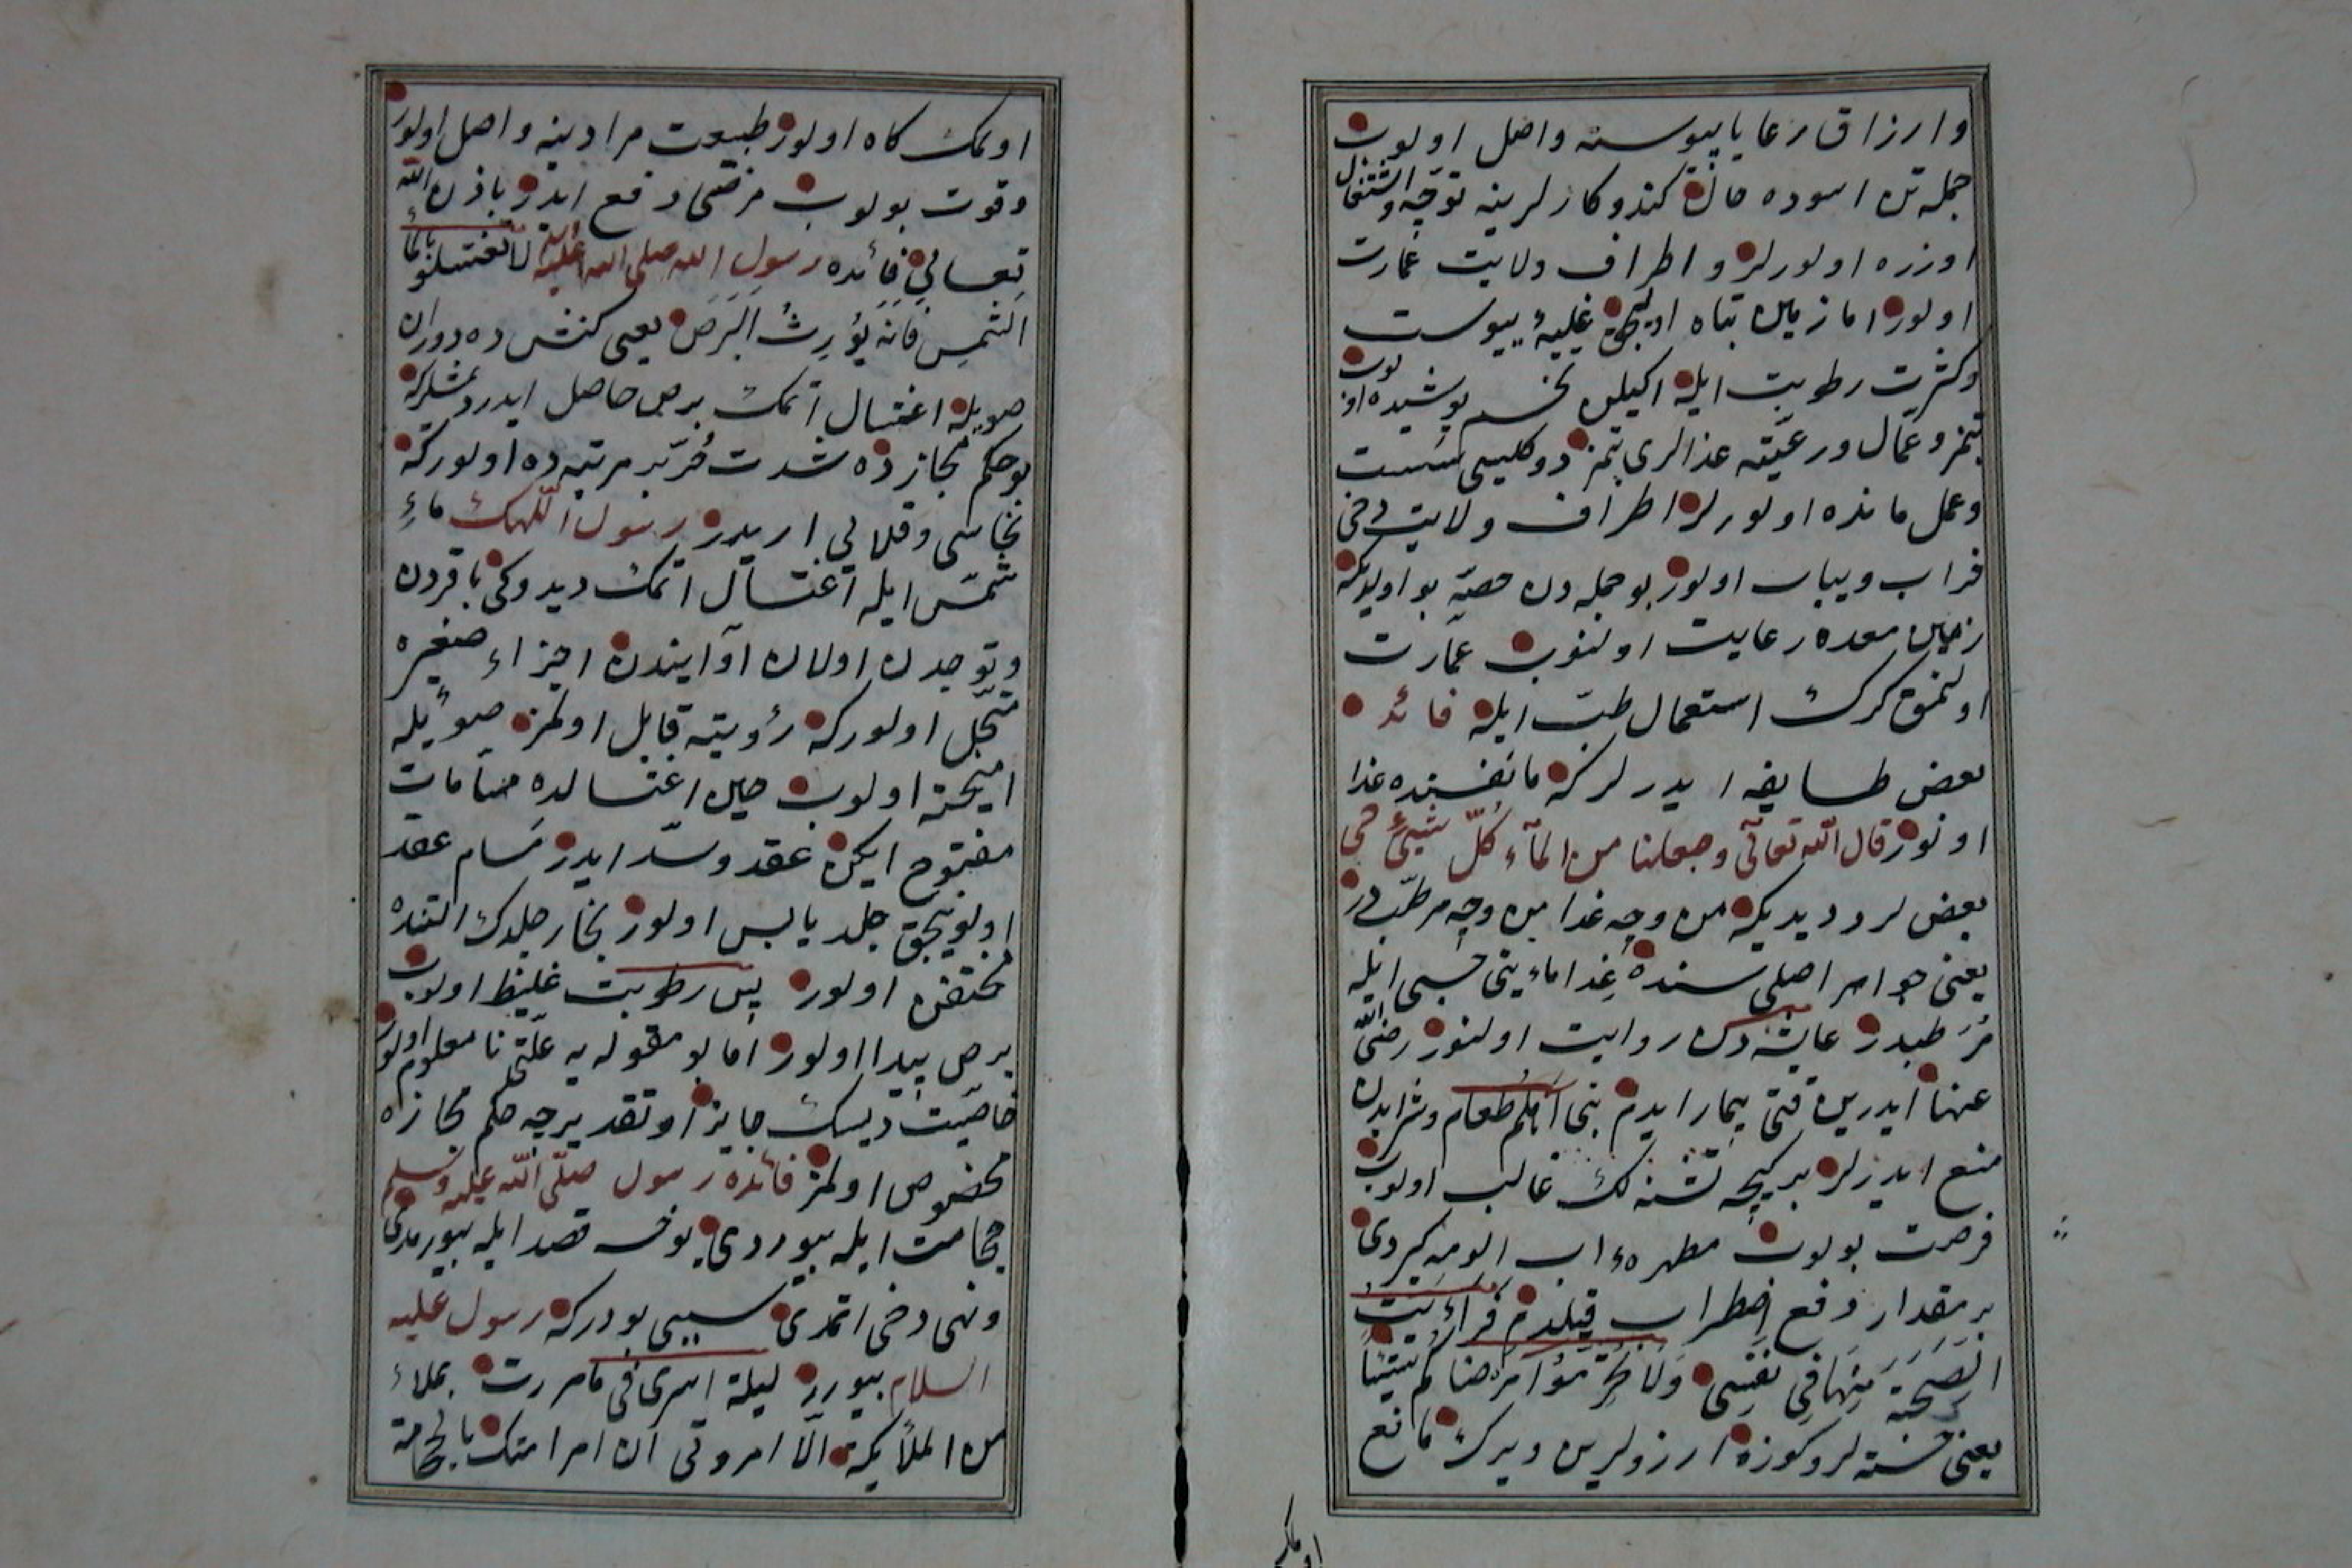 وارزاق رعايا پيوسته واصل اولوب
جمله تن اسوده حال كندو كارلرينه توجه واشتغال
اوزره اولورلر واطراف ولايت عمارت
اولور اما زمين تباه اوليجق غلبهٔ يبوست
وكثرت رطوبت ايله اكيلن تخم پوشيده اولوب
بتمز وعمال ورعيته غذالرى يتمز دوكليسى سست
وعمل مانده اولورلر اطراف ولايت دخى
خراب ويباب اولور بو جمله دن حصه بو اوليكه
زمين معده رعايت اولنوب عمارت
اولنمق كرك استعمال طب ايله فائده
بعض طايفه ايدرلركه ما نفسنده غذا
اولور قال الله تعالى وجعلنا من الماء كل شيئ حى
بعض لر دديديكه من وجه غذا من وجه مرطبدر
يعنى هو امر اصلى سنده غذا ماءيتى حسبى ايله
مرطبدر عايشه دن روايت اولنور رضى الله
عنها ايدرين قتى بيمار ايدم بنى اهلم طعام وشرابدن
منع ايدرلر بر كيجه تشنه لك غالب اولوب
فرصت بولوب مطهرهء اب الومه كيردى
بر مقدار دفع اضطراب قيلدم فرأيت
الصحة منها فى نفسى ولا تحرموا مرضاكم شيئا
يعنى خسته لروكوزه ارزولرين ويرك مانع
اولمك كاه اولور طبيعت مرادينه واصل اولور
وقوت بولوب مرضى دفع ايدر باذن الله
تعالى فائده رسول الله صلى الله عليه لا تغتسلوا بالماء
الشمس فانه يؤرث البرص يعنى كنش ده دوران
صويله اغتسال اتمك برص حاصل ايدر ديمشلركه
بو حكم حجازده شدت حر بر مرتبه ده اولوركه
نحاسى وقلايى اريدر رسول اللهك ماءِ
شمس ايله اغتسال اتمك ديدوكى باقردن
وتوجدن اولان اوانيندن اجزاء صغيره
متحلل اولوركه رؤيته قابل اولمز صوئيله
اميخته اولوب حين اغتسالده مسامات
مفتوح ايكن عقد وسد ايدر مسام عقد
اولونيجق جلد يابس اولور بخار جلدك التنده
محتقن اولور پس رطوبت غليظ اولوب
برص پيدا اولور اما بو مقوله يه علتى نا معلوم اولور
خاصيت ديسك جايز او تقديرجه حكم حجازه
مخصوص اولمز فائده رسول صلى الله عليه وسلم
حجامت ايله بيوردى يوخسه قصد ايله بيورمدى
ونهى دخى اتمدى سببى بودركه رسول عليه
السلام بيورر ليلة اسرى فى ما مررت بملاء
من الملائيكة الا امروتى ان امر امتك بالحجامة
اولمك